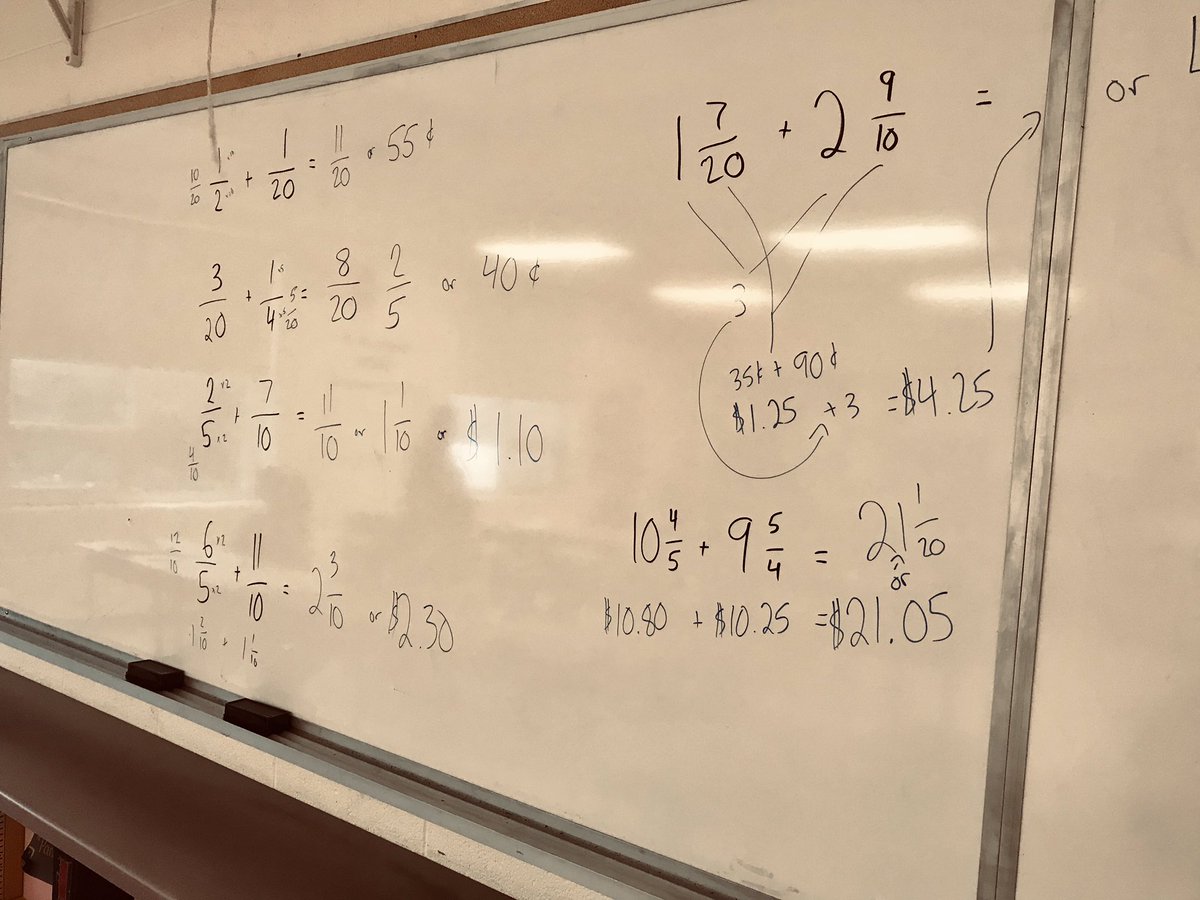 10/20 1/2 + 1/20 = 11/20 or 55¢
3/20 + 1/4 5/20 = 8/20 2/5 or 40¢
2/5 x2 x2 + 7/10 = 11/10 or 1 1/10 or $1.10
4/10
12/10 6/5 x2 x2 + 11/10 = 2 3/10 or $2.30
1 2/10 + 1 1/10
1 7/20 + 2 9/10 = or
3
35¢ + 90¢
$1.25 + 3 = $4.25
10 4/5 + 9 5/4 = 21 1/20
or
$10.80 + $10.25 = $21.05